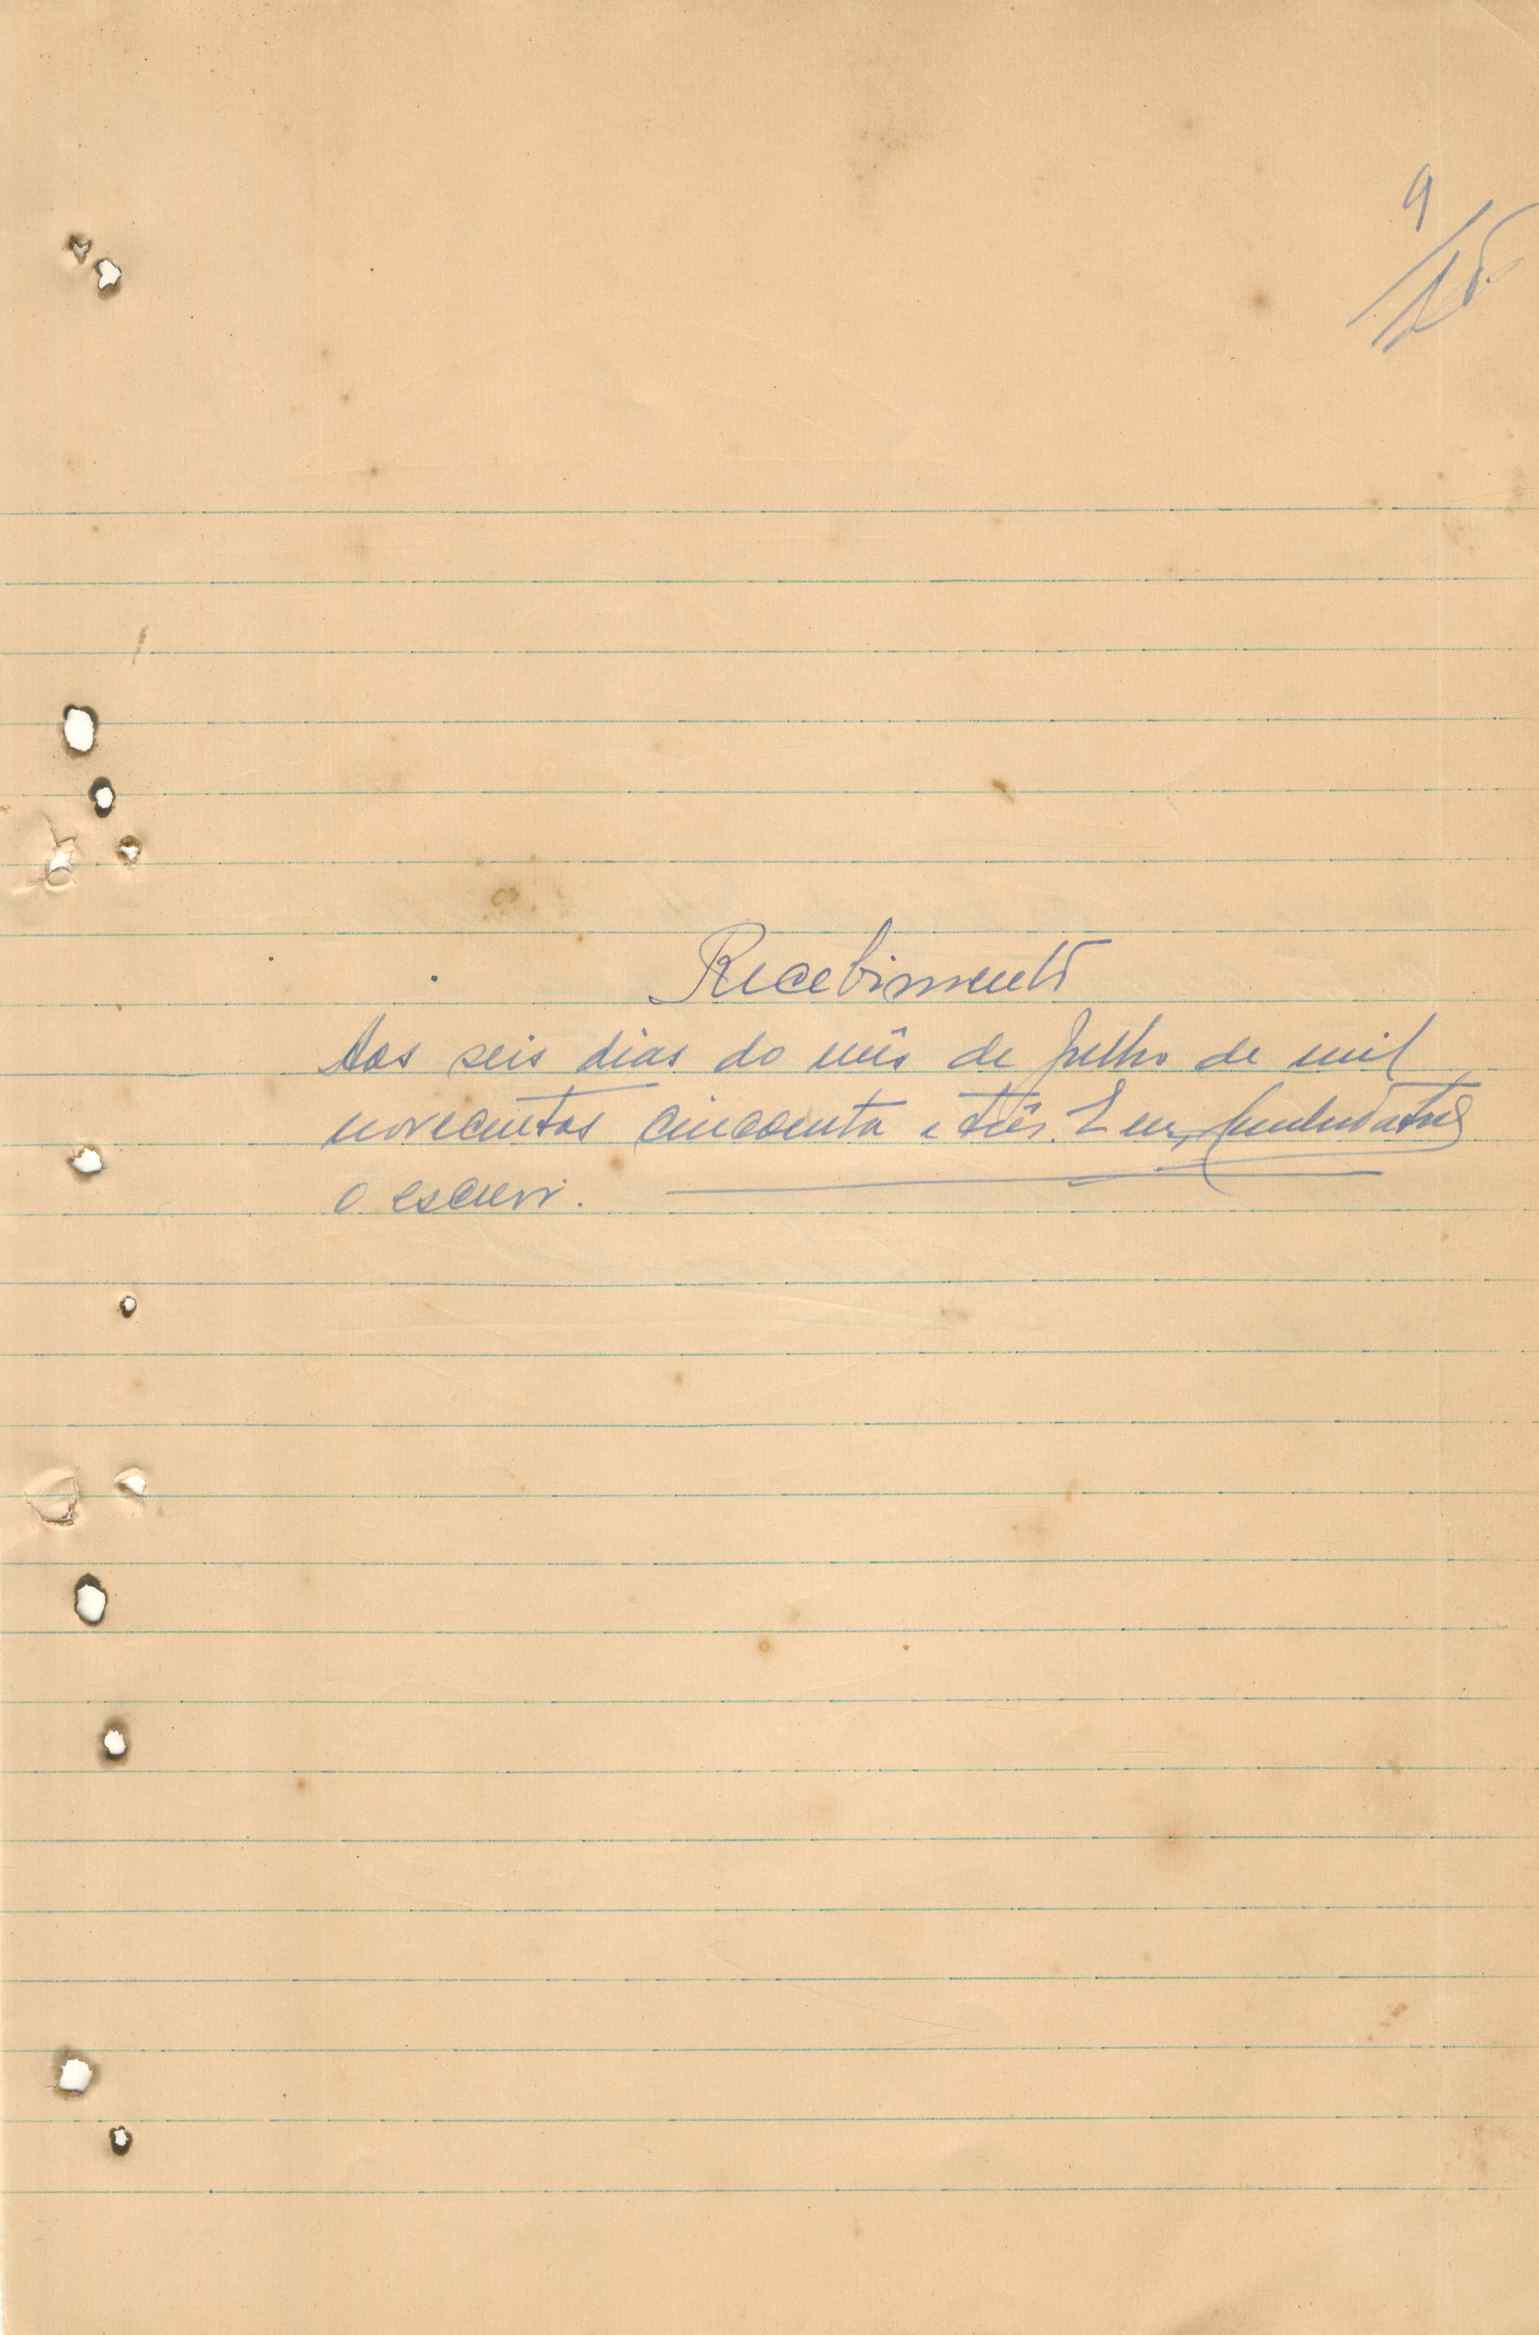 9
Recebimento
Aos seis dias do mês de Julho de mil
novecentos cincoenta e três. E eu,
o escrevi.